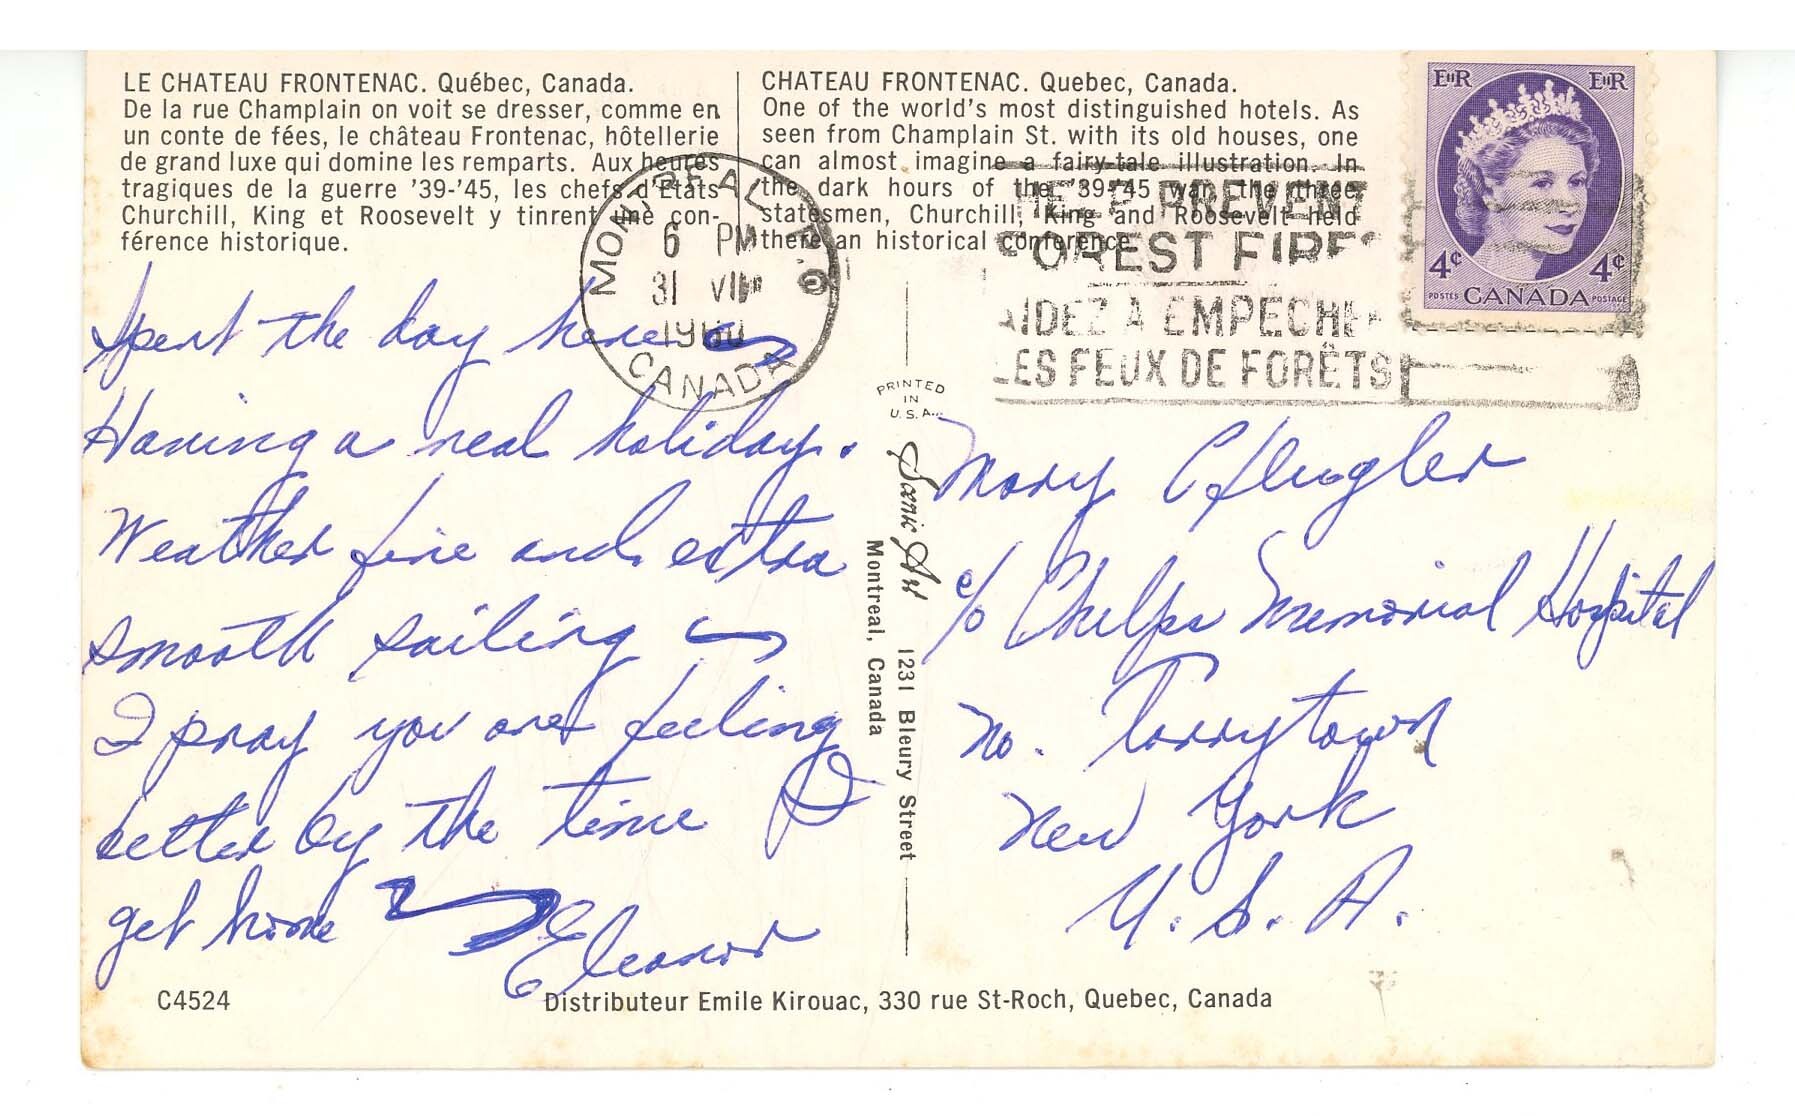 LE CHATEAU FRONTENAC. Québec, Canada.
De la rue Champlain on voit se dresser, comme en
un conte de fées, le château Frontenac, hôtellerie
de grand luxe qui domine les remparts. Aux heures
tragiques de la guerre '39-'45, les chefs d'Etats
Churchill, King et Roosevelt y tinrent une con-
férence historique.
CHATEAU FRONTENAC. Quebec, Canada.
One of the world's most distinguished hotels. As
seen from Champlain St. with its old houses, one
can almost imagine a fairy-tale illustration. In
the dark hours of the '39-'45 war, the three
statesmen, Churchill, King and Roosevelt held
there an historical conference.
EIIR EIIR
4¢ 4¢
POSTES CANADA POSTAGE
MONTREAL
6 PM
31
1960
CANADA
HELP PREVENT
FOREST FIRES
AIDEZ A EMPECHER
LES FEUX DE FORÊTS
Spent the day here
Having a real holiday.
Weather fine and extra
smooth sailing
I pray you are feeling
better by the time I
get home
Eleanor
PRINTED
IN
U.S.A.
1231 Bleury Street
Montreal, Canada
Mary
c/o Chelps Memorial Hospital
No. Tarrytown
New York
U.S.A.
C4524
Distributeur Emile Kirouac, 330 rue St-Roch, Quebec, Canada